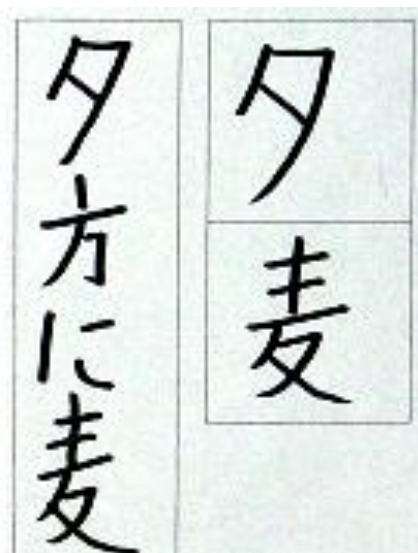 夕
麦
夕方に麦